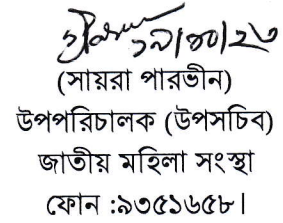 ১৯/১০/২৩
(সায়রা পারভীন)
উপপরিচালক (উপসচিব)
জাতীয় মহিলা সংস্থা
ফোন :৯৩৫১৬৫৮।